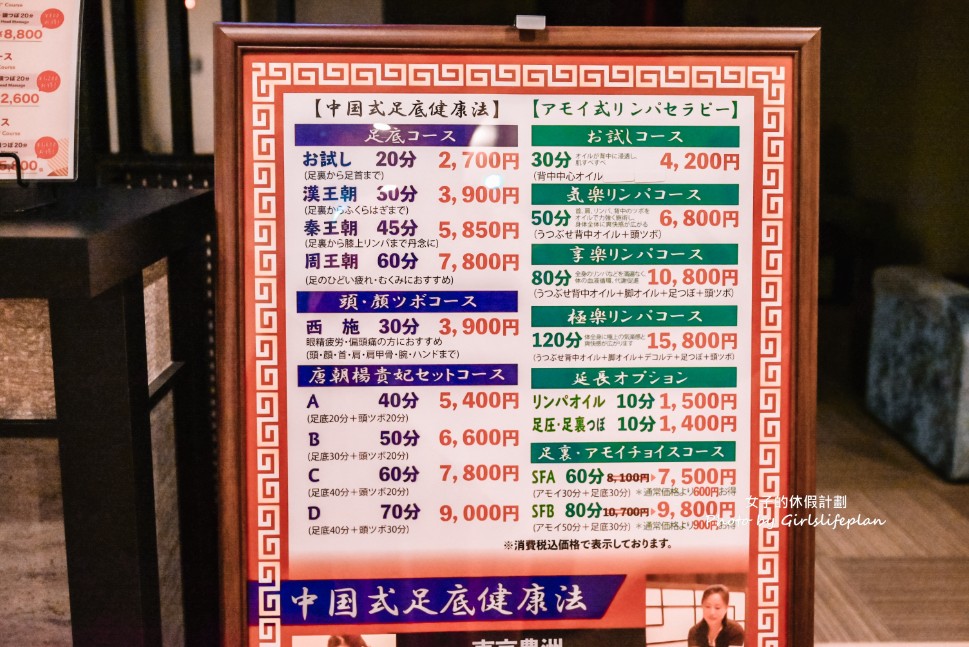 ¥8,800
2,600
【中国式足底健康法】
足底コース
お試し 20分 2,700円
(足裏から足首まで)
漢王朝 30分 3,900円
(足裏からふくらはぎまで)
秦王朝 45分 5,850円
(足裏から膝上リンパまで丹念に)
周王朝 60分 7,800円
(足のひどい疲れ・むくみにおすすめ)
頭・顔ツボコース
西施 30分 3,900円
眼精疲労・偏頭痛の方におすすめ
(頭・顔・首・肩・肩甲骨・腕・ハンドまで)
唐朝楊貴妃セットコース
A 40分 5,400円
(足底20分+頭ツボ20分)
B 50分 6,600円
(足底30分+頭ツボ20分)
C 60分 7,800円
(足底40分+頭ツボ20分)
D 70分 9,000円
(足底40分+頭ツボ30分)
【アモイ式リンパセラピー】
お試しコース
30分 オイルが背中に浸透し、肌すべすべ 4,200円
(背中中心オイル
気楽リンパコース
50分 6,800円
(うつぶせ背中オイル+頭ツボ)
享楽リンパコース
80分 10,800円
(うつぶせ背中オイル+脚オイル+足つぼ+頭ツボ)
極楽リンパコース
120分 15,800円
(うつぶせ背中オイル+脚オイル+デコルテ+足つぼ+頭ツボ)
延長オプション
リンパオイル 10分 1,500円
足圧・足裏つぼ 10分 1,400円
足裏・アモイチョイスコース
SFA 60分 8,100円▶7,500円
(アモイ30分+足底30分) *通常価格より600円お得
SFB 80分 10,700円▶9,800円
(アモイ50分+足底30分) *通常価格より900円お得
※消費税込価格で表示しております。
中国式足底健康法
東京豊洲
女子的休假計劃
Photo by Girlslifeplan